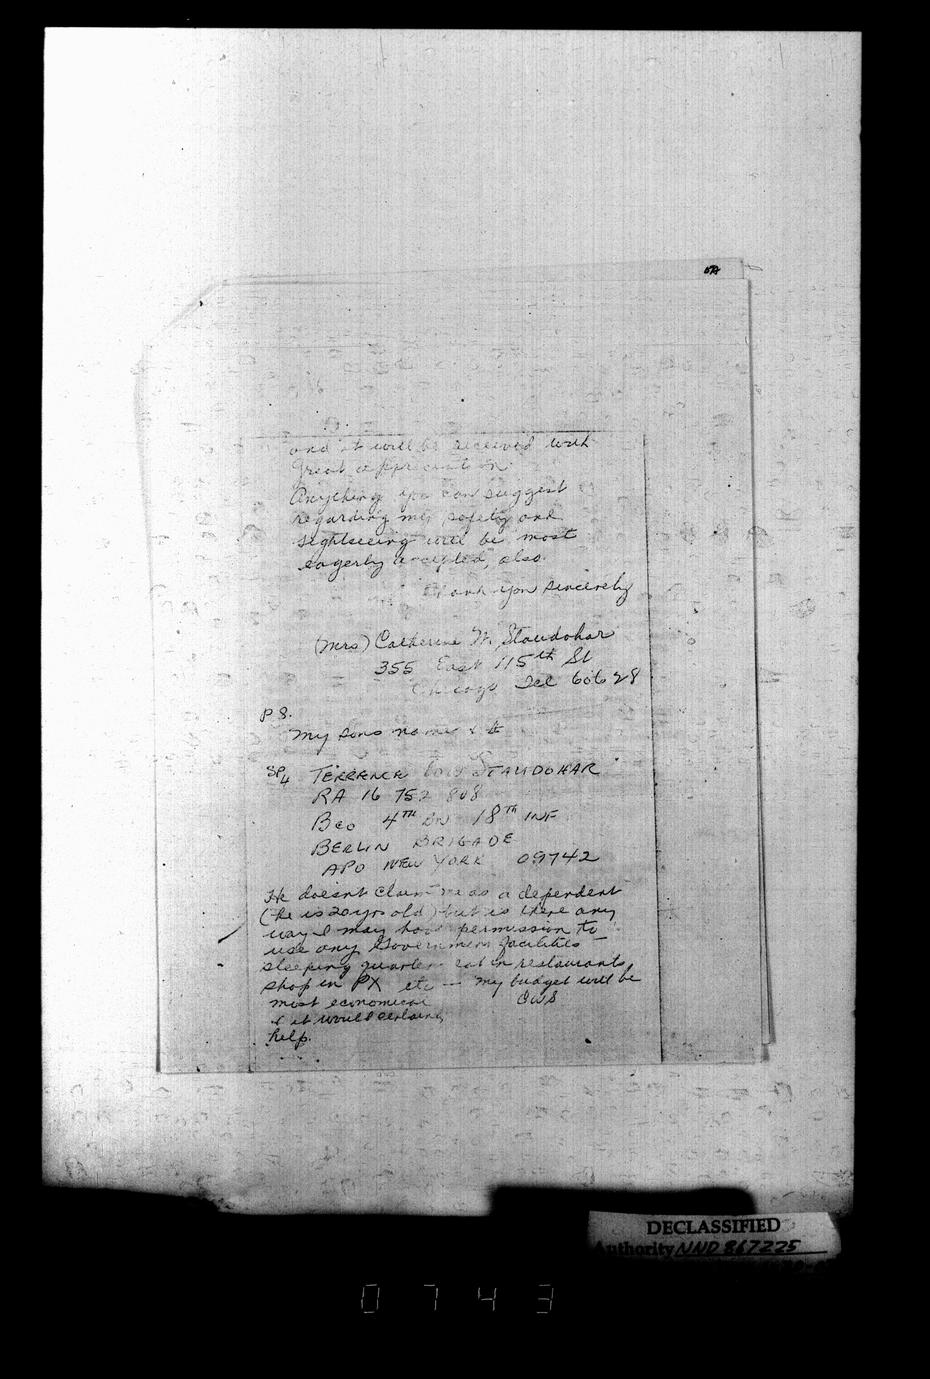 and it will be received with
great appreciation.
Anything you can suggest
regarding my safety and
sightseeing will be most
eagerly accepted, also.
Thank you sincerely
(Mrs) Catherine W. Staudohar
355 East 115th St
Chicago Ill 60628
P S.
My sons name &
SP4 TERRENCE STAUDOHAR
RA 16 752 808
B co 4TH BN 18TH INF
BERLIN BRIGADE
APO NEW YORK 09742
He doesnt claim me as a dependent
(he is 20 yrs old) but is there any
way I may have permission to
use any Government facilities —
sleeping quarters eat in restaurants,
shop in PX etc — my budget will be
most economical CWS
& it would certainly
help.
DECLASSIFIED
Authority NND 867225
0743